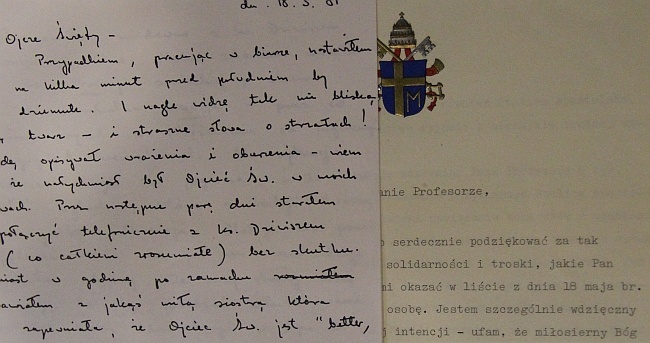 dn. 18.5.81
Ojcze Święty –
Przypadkiem, pracując w biurze, nastawiłem
na kilka minut przed południem by
dziennik. I nagle widzę tak mi bliską
twarz – i straszne słowa o strzałach!
opisywał wrażenia i oburzenia – wiem
że natychmiast był Ojciec Św. w moich
Przez następne parę dni starałem
połączyć telefonicznie z ks. Dziwiszem
(co całkiem zrozumiałe) bez skutku.
w godzinę po zamachu rozmawiałem
z jakąś miłą siostrą która
zapewniała, że Ojciec Św. jest "better,
M
anie Profesorze,
serdecznie podziękować za tak
solidarności i troski, jakie Pan
mi okazać w liście z dnia 18 maja br.
osobę. Jestem szczególnie wdzięczny
j intencji - ufam, że miłosierny Bóg